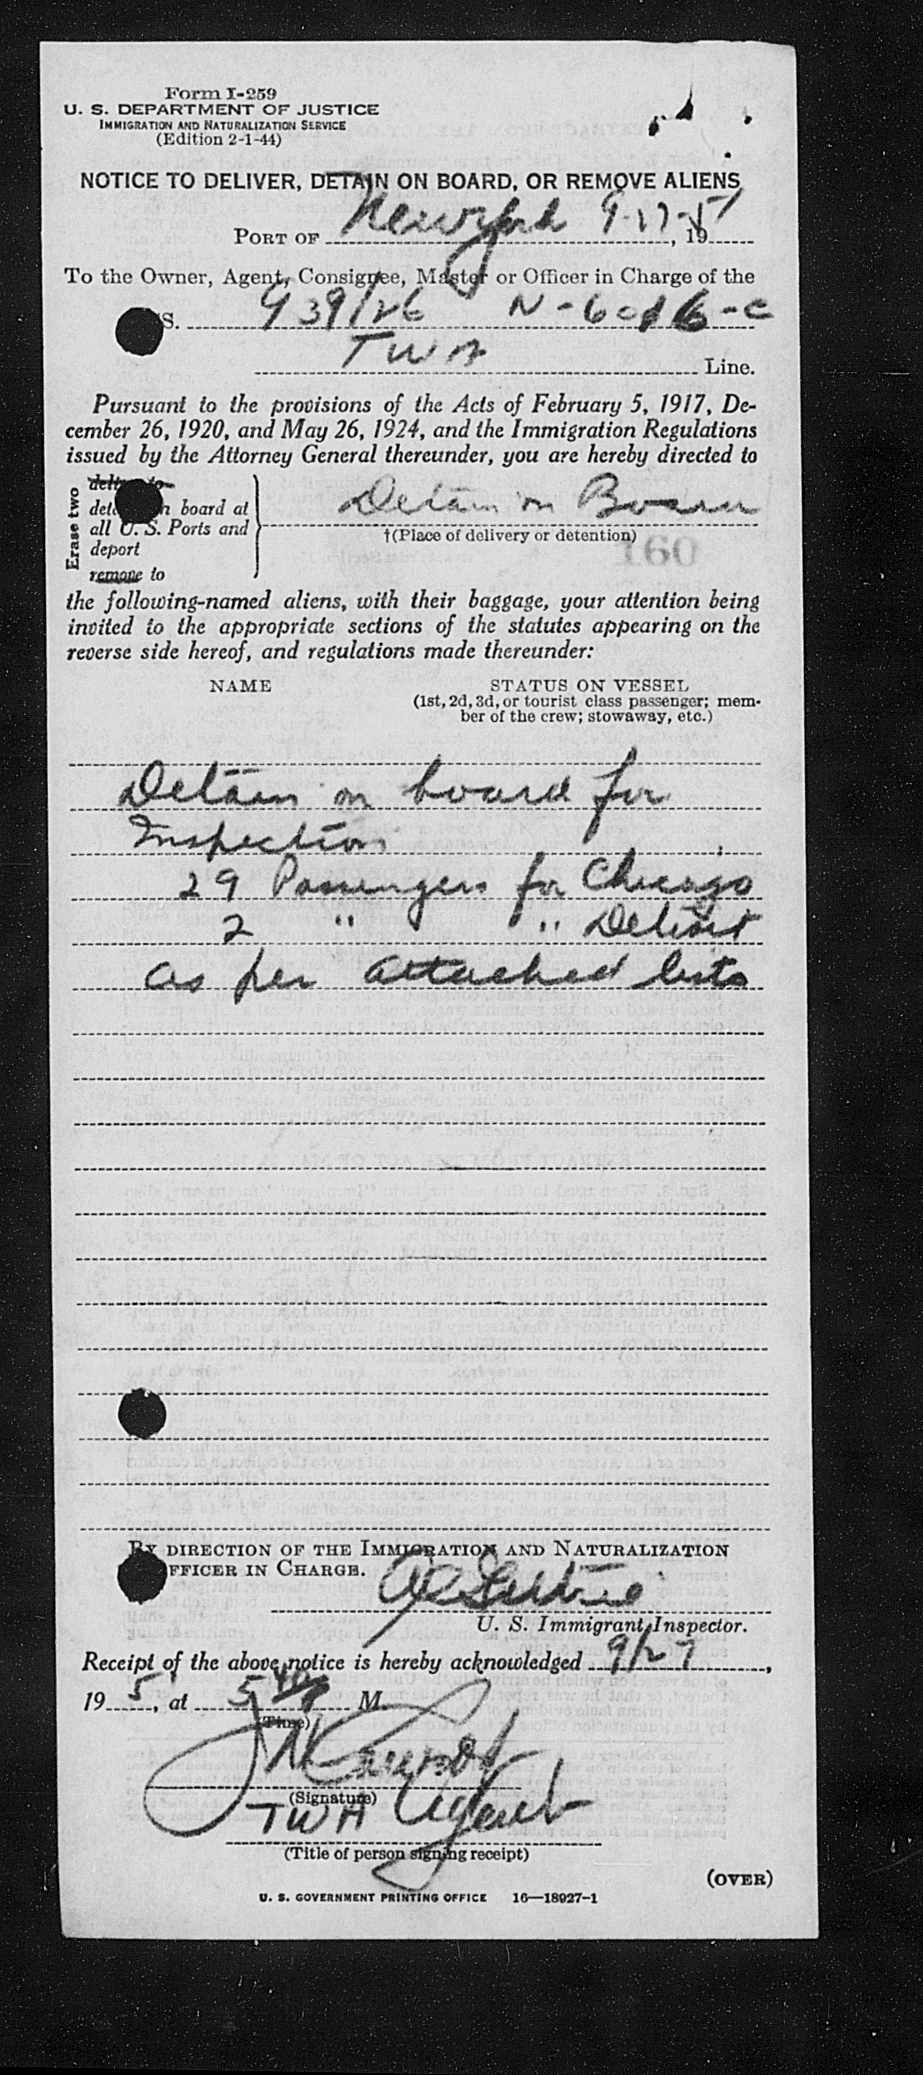 Form I-259
U. S. DEPARTMENT OF JUSTICE
IMMIGRATION AND NATURALIZATION SERVICE
(Edition 2-1-44)
NOTICE TO DELIVER, DETAIN ON BOARD, OR REMOVE ALIENS
PORT OF New York 9-27-51, 19
To the Owner, Agent, Consignee, Master or Officer in Charge of the
SS. 939/26 N-6016-C
TWA Line.
Pursuant to the provisions of the Acts of February 5, 1917, De-
cember 26, 1920, and May 26, 1924, and the Immigration Regulations
issued by the Attorney General thereunder, you are hereby directed to
Erase two
deliver to
detain on board at
all U. S. Ports and
deport
remove to
Detain on Board
†(Place of delivery or detention)
160
the following-named aliens, with their baggage, your attention being
invited to the appropriate sections of the statutes appearing on the
reverse side hereof, and regulations made thereunder:
NAME STATUS ON VESSEL
(1st, 2d, 3d, or tourist class passenger; mem-
ber of the crew; stowaway, etc.)
Detain on board for
Inspection
29 Passengers for Chicago
2 " " Detroit
as per attached lists
BY DIRECTION OF THE IMMIGRATION AND NATURALIZATION
OFFICER IN CHARGE.
U. S. Immigrant Inspector.
Receipt of the above notice is hereby acknowledged 9/27,
19 51, at 5 40 P M.
(Time)
(Signature)
TWA Agent
(Title of person signing receipt)
(OVER)
U. S. GOVERNMENT PRINTING OFFICE 16—18927-1